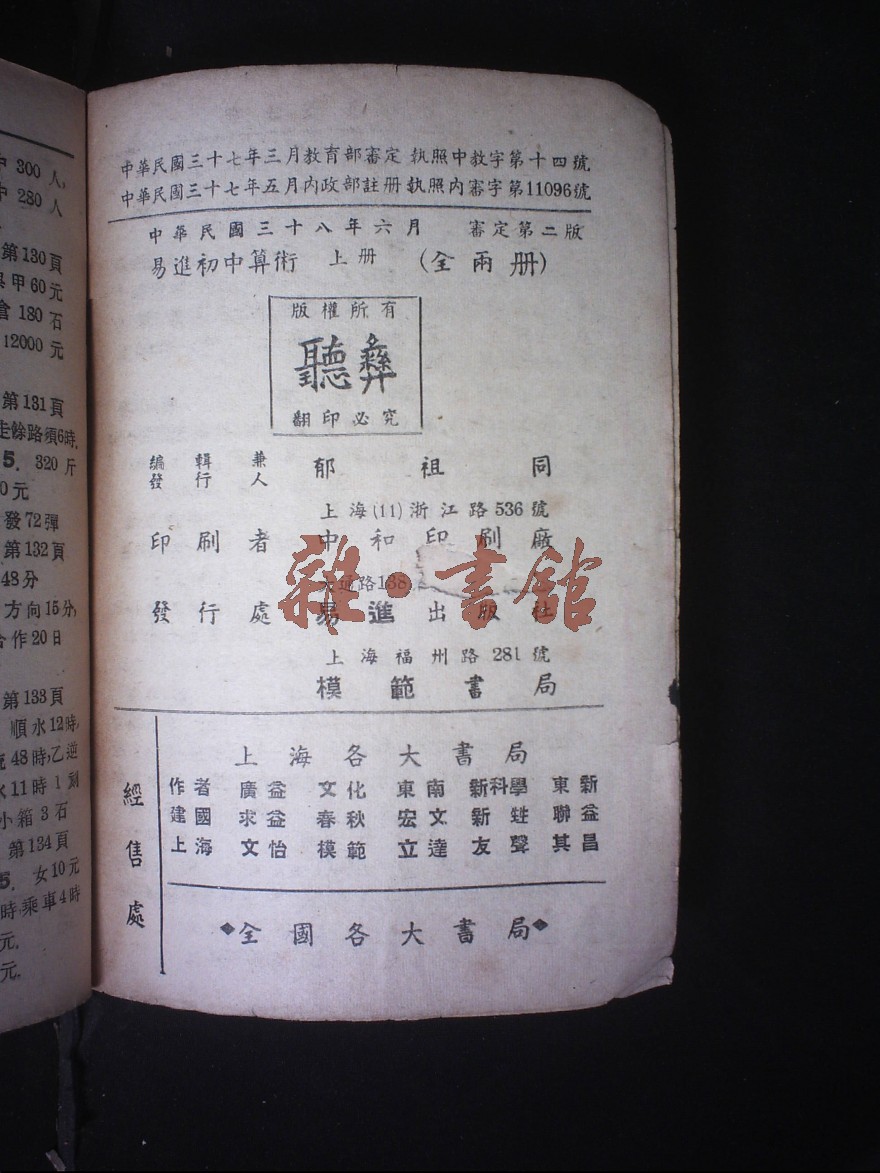 中 300 人,
中 280 人
第130頁
甲60元
180 石
12000 元
第131頁
走餘路須6時.
5. 320 斤
0元
發72彈
第132頁
48分
方向15分,
合作20日
第133頁
順水12時,
48時,乙逆
水11時1刻
小箱3石
第134頁
5. 女10元
時,乘車4時
元.
元.
中華民國三十七年三月教育部審定 執照中教字第十四號
中華民國三十七年五月內政部註册 執照內審字第11096號
中華民國三十八年六月 審定第二版
易進初中算術 上册 (全兩册)
版權所有
聽彝
翻印必究
編輯兼
發行人
郁祖同
上海(11)浙江路536號
印刷者 中和印刷廠
通路138
發行處 易進出版社
上海福州路281號
模範書局
雜·書館
經售處
上海各大書局
作者 廣益 文化 東南 新科學 東新
建國 求益 春秋 宏文 新甡 聯益
上海 文怡 模範 立達 友聲 其昌
◆全國各大書局◆